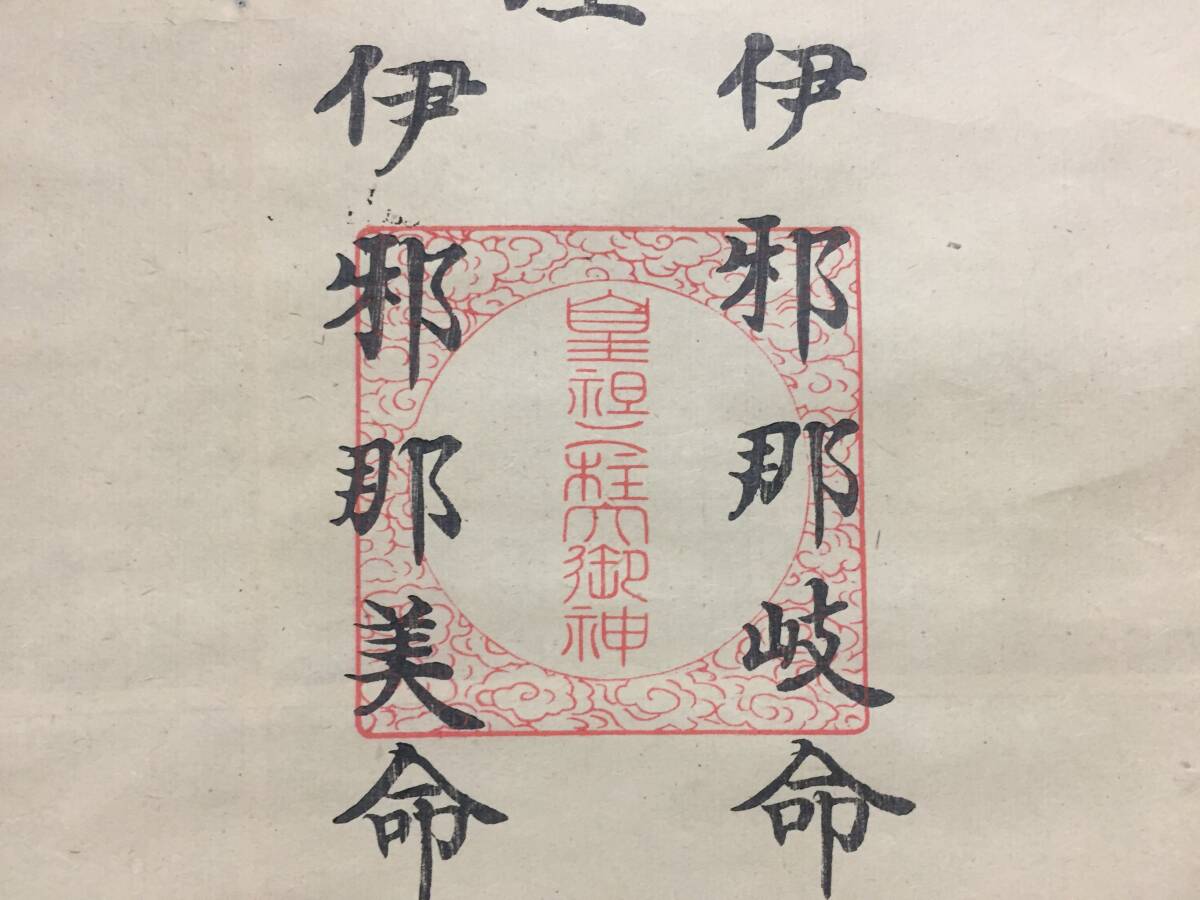 伊邪那岐命
皇祖二柱大御神
伊邪那美命